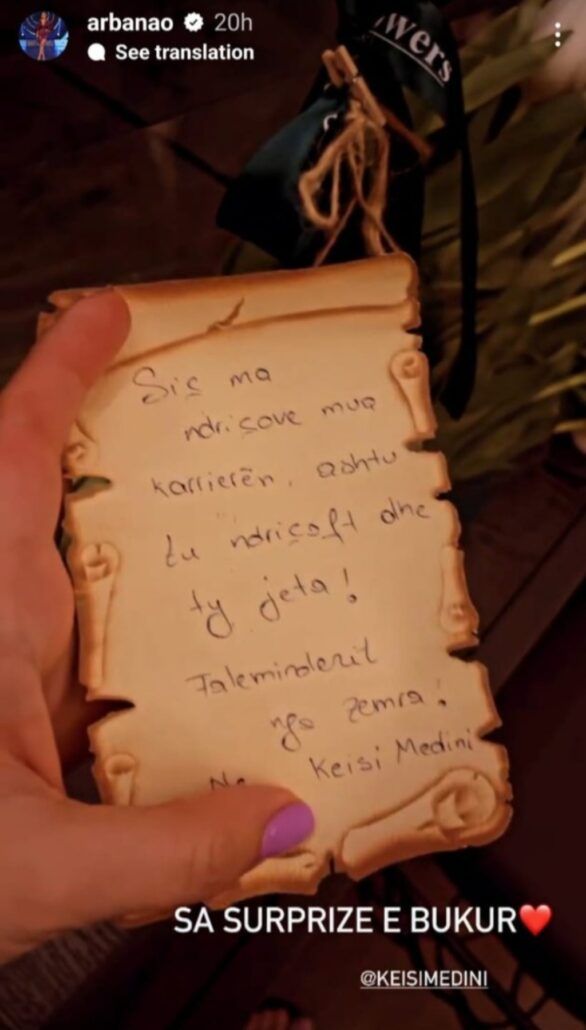 arbanao 20h
See translation
wers
Siç ma
ndriçove mua
karrierën, ashtu
tu ndriçoft dhe
ty jeta!
Faleminderit
nga zemra!
Keisi Medini
SA SURPRIZE E BUKUR❤️
@KEISIMEDINI